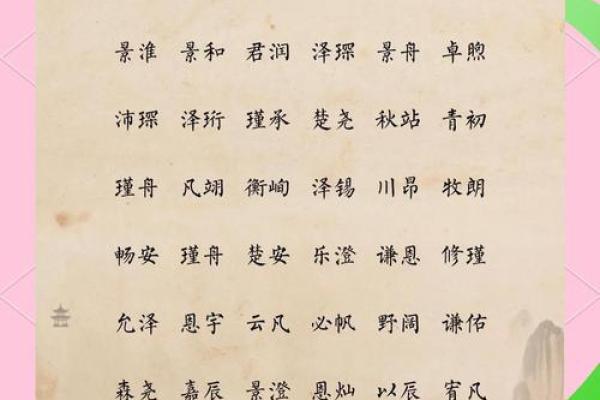 景淮 景和 君润 泽琛 景舟 卓煦
沛琛 泽珩 瑾承 楚尧 秋站 青初
瑾舟 凡翊 衡峋 泽锡 川昂 牧朗
畅安 瑾舟 楚安 乐澄 谦恩 修瑾
允泽 恩宇 云凡 必帆 野阔 谦佑
森尧 嘉辰 景澄 恩灿 以辰 宥凡